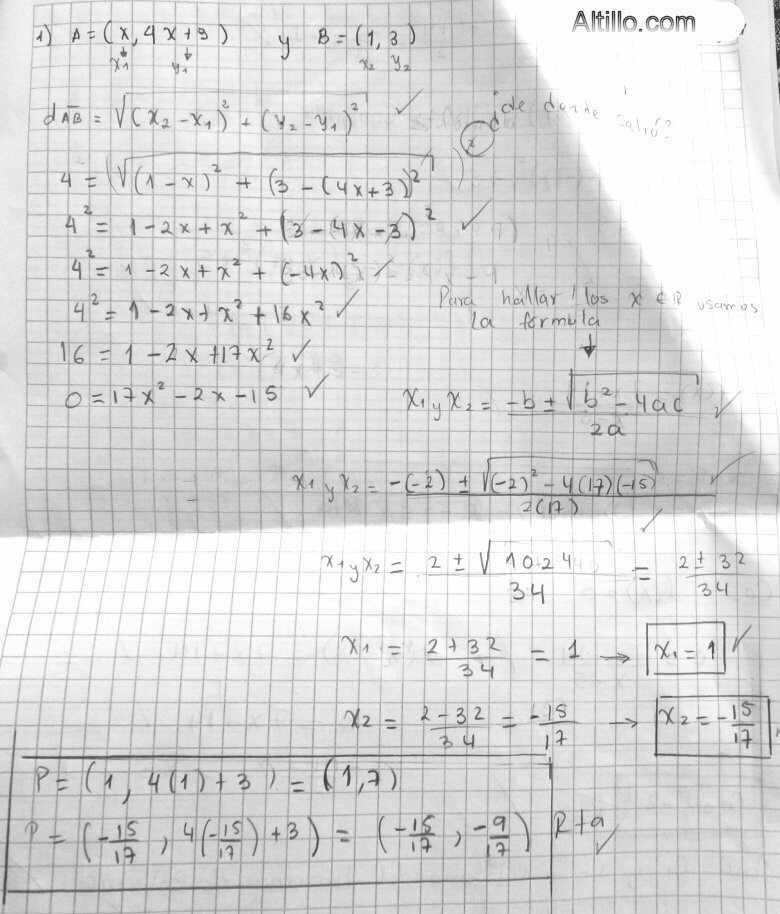 Altillo.com
1) A = (x, 4x+3) y B = (1, 3)
x₁ y₁ x₂ y₂
dAB = √((x₂ - x₁)² + (y₂ - y₁)²) ✓
¿de donde salió?
4 = √((1-x)² + (3 - (4x+3))²)
4² = 1 - 2x + x² + (3 - 4x - 3)² ✓
4² = 1 - 2x + x² + (-4x)² ✓
4² = 1 - 2x + x² + 16x² ✓
16 = 1 - 2x + 17x² ✓
0 = 17x² - 2x - 15 ✓
Para hallar los x ∈ R usamos
la formula
↓
x₁ y x₂ = (-b ± √(b² - 4ac)) / 2a ✓
x₁ y x₂ = (-(-2) ± √((-2)² - 4(17)(-15))) / 2(17) ✓
x₁ y x₂ = (2 ± √1024) / 34 = (2 ± 32) / 34 ✓
x₁ = (2 + 32) / 34 = 1 → x₁ = 1 ✓
x₂ = (2 - 32) / 34 = -15/17 → x₂ = -15/17
P = (1, 4(1) + 3) = (1, 7)
P = (-15/17, 4(-15/17) + 3) = (-15/17, -9/17) Rta ✓